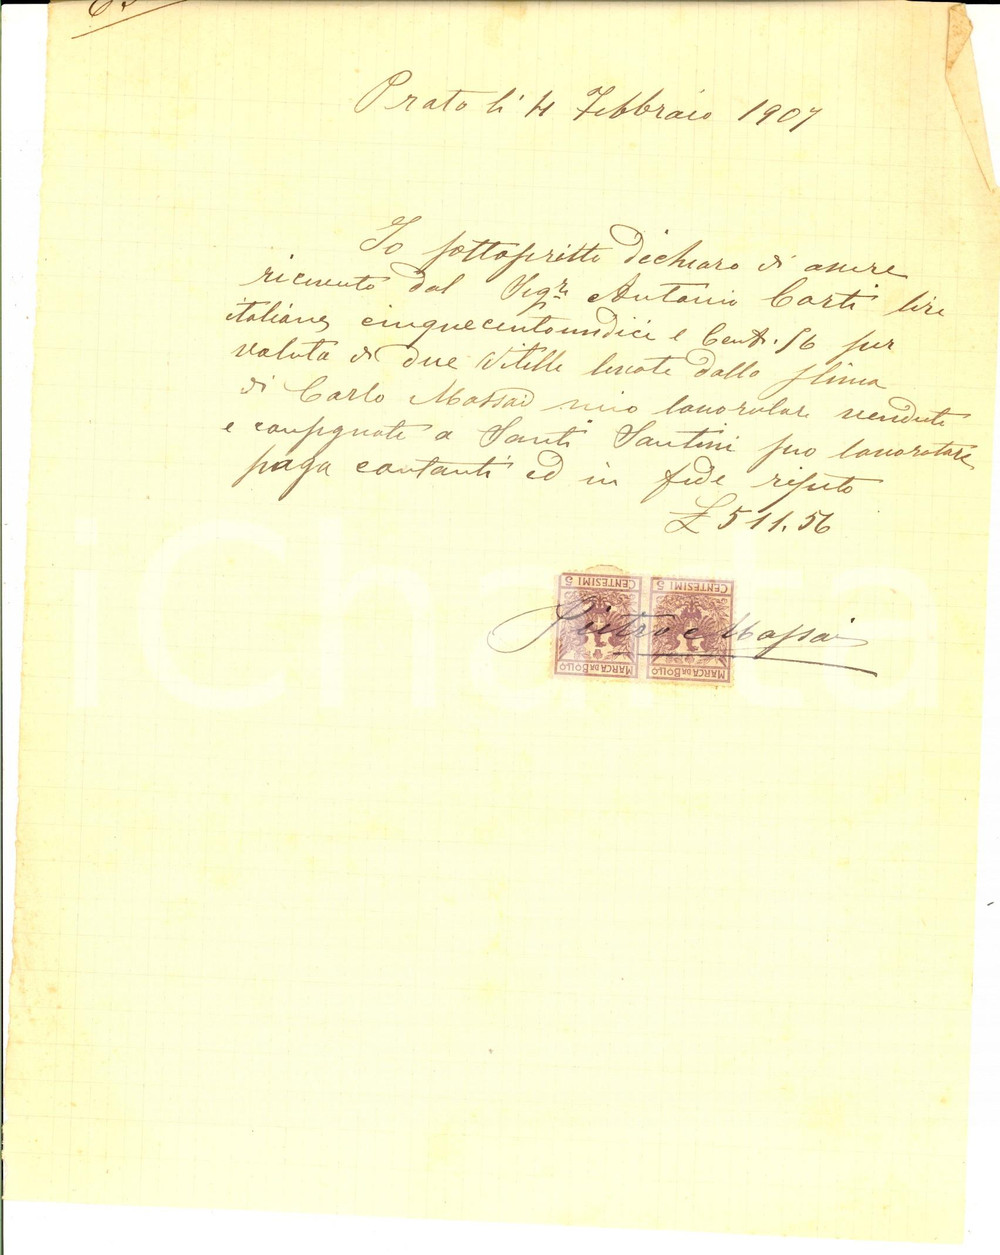 Prato li 4 Febbraio 1907
Io sottoscritto dichiaro di avere
ricevuto dal Sigre Antonio Corti lire
italiane cinquecentoundici e Cent. 56 per
valuta di due Vitelle levate dalla stima
di Carlo Massai mio lavoratore vendute
e consegnate a Santi Santini suo lavoratore
paga contanti ed in fede
£ 511.56
CENTESIMI 5 CENTESIMI 5
Massai
MARCA DA BOLLO MARCA DA BOLLO
iCharta